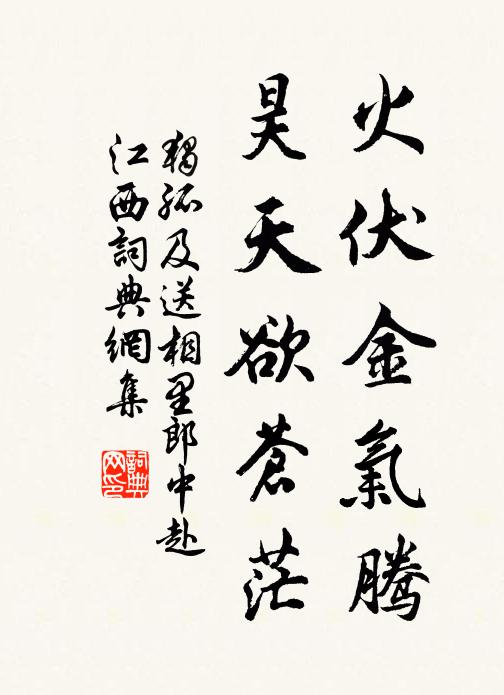 火伏金氣騰
昊天欲蒼茫
獨孤及送相里郎中赴
江西詞典網集
詞典網印